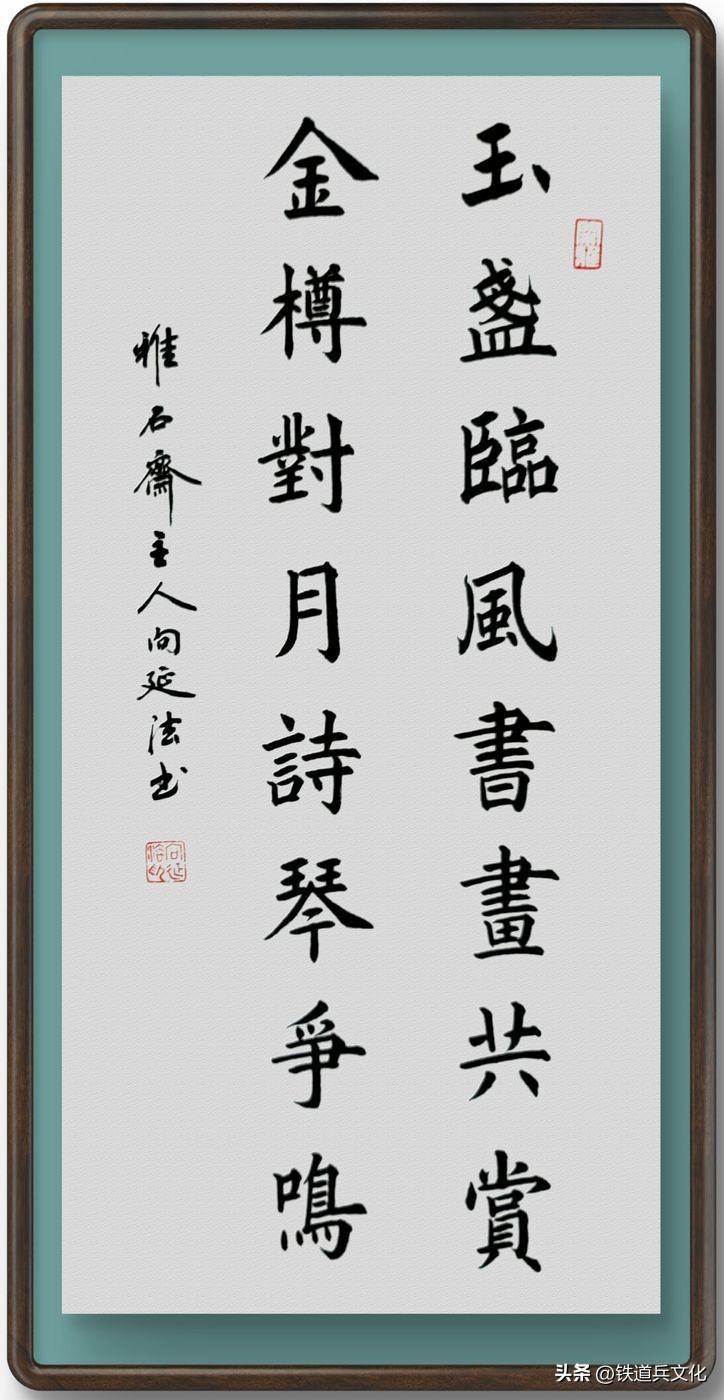 玉盏臨風書畫共賞
金樽對月詩琴爭鳴
雅石齋主人向延法书
头条 @铁道兵文化